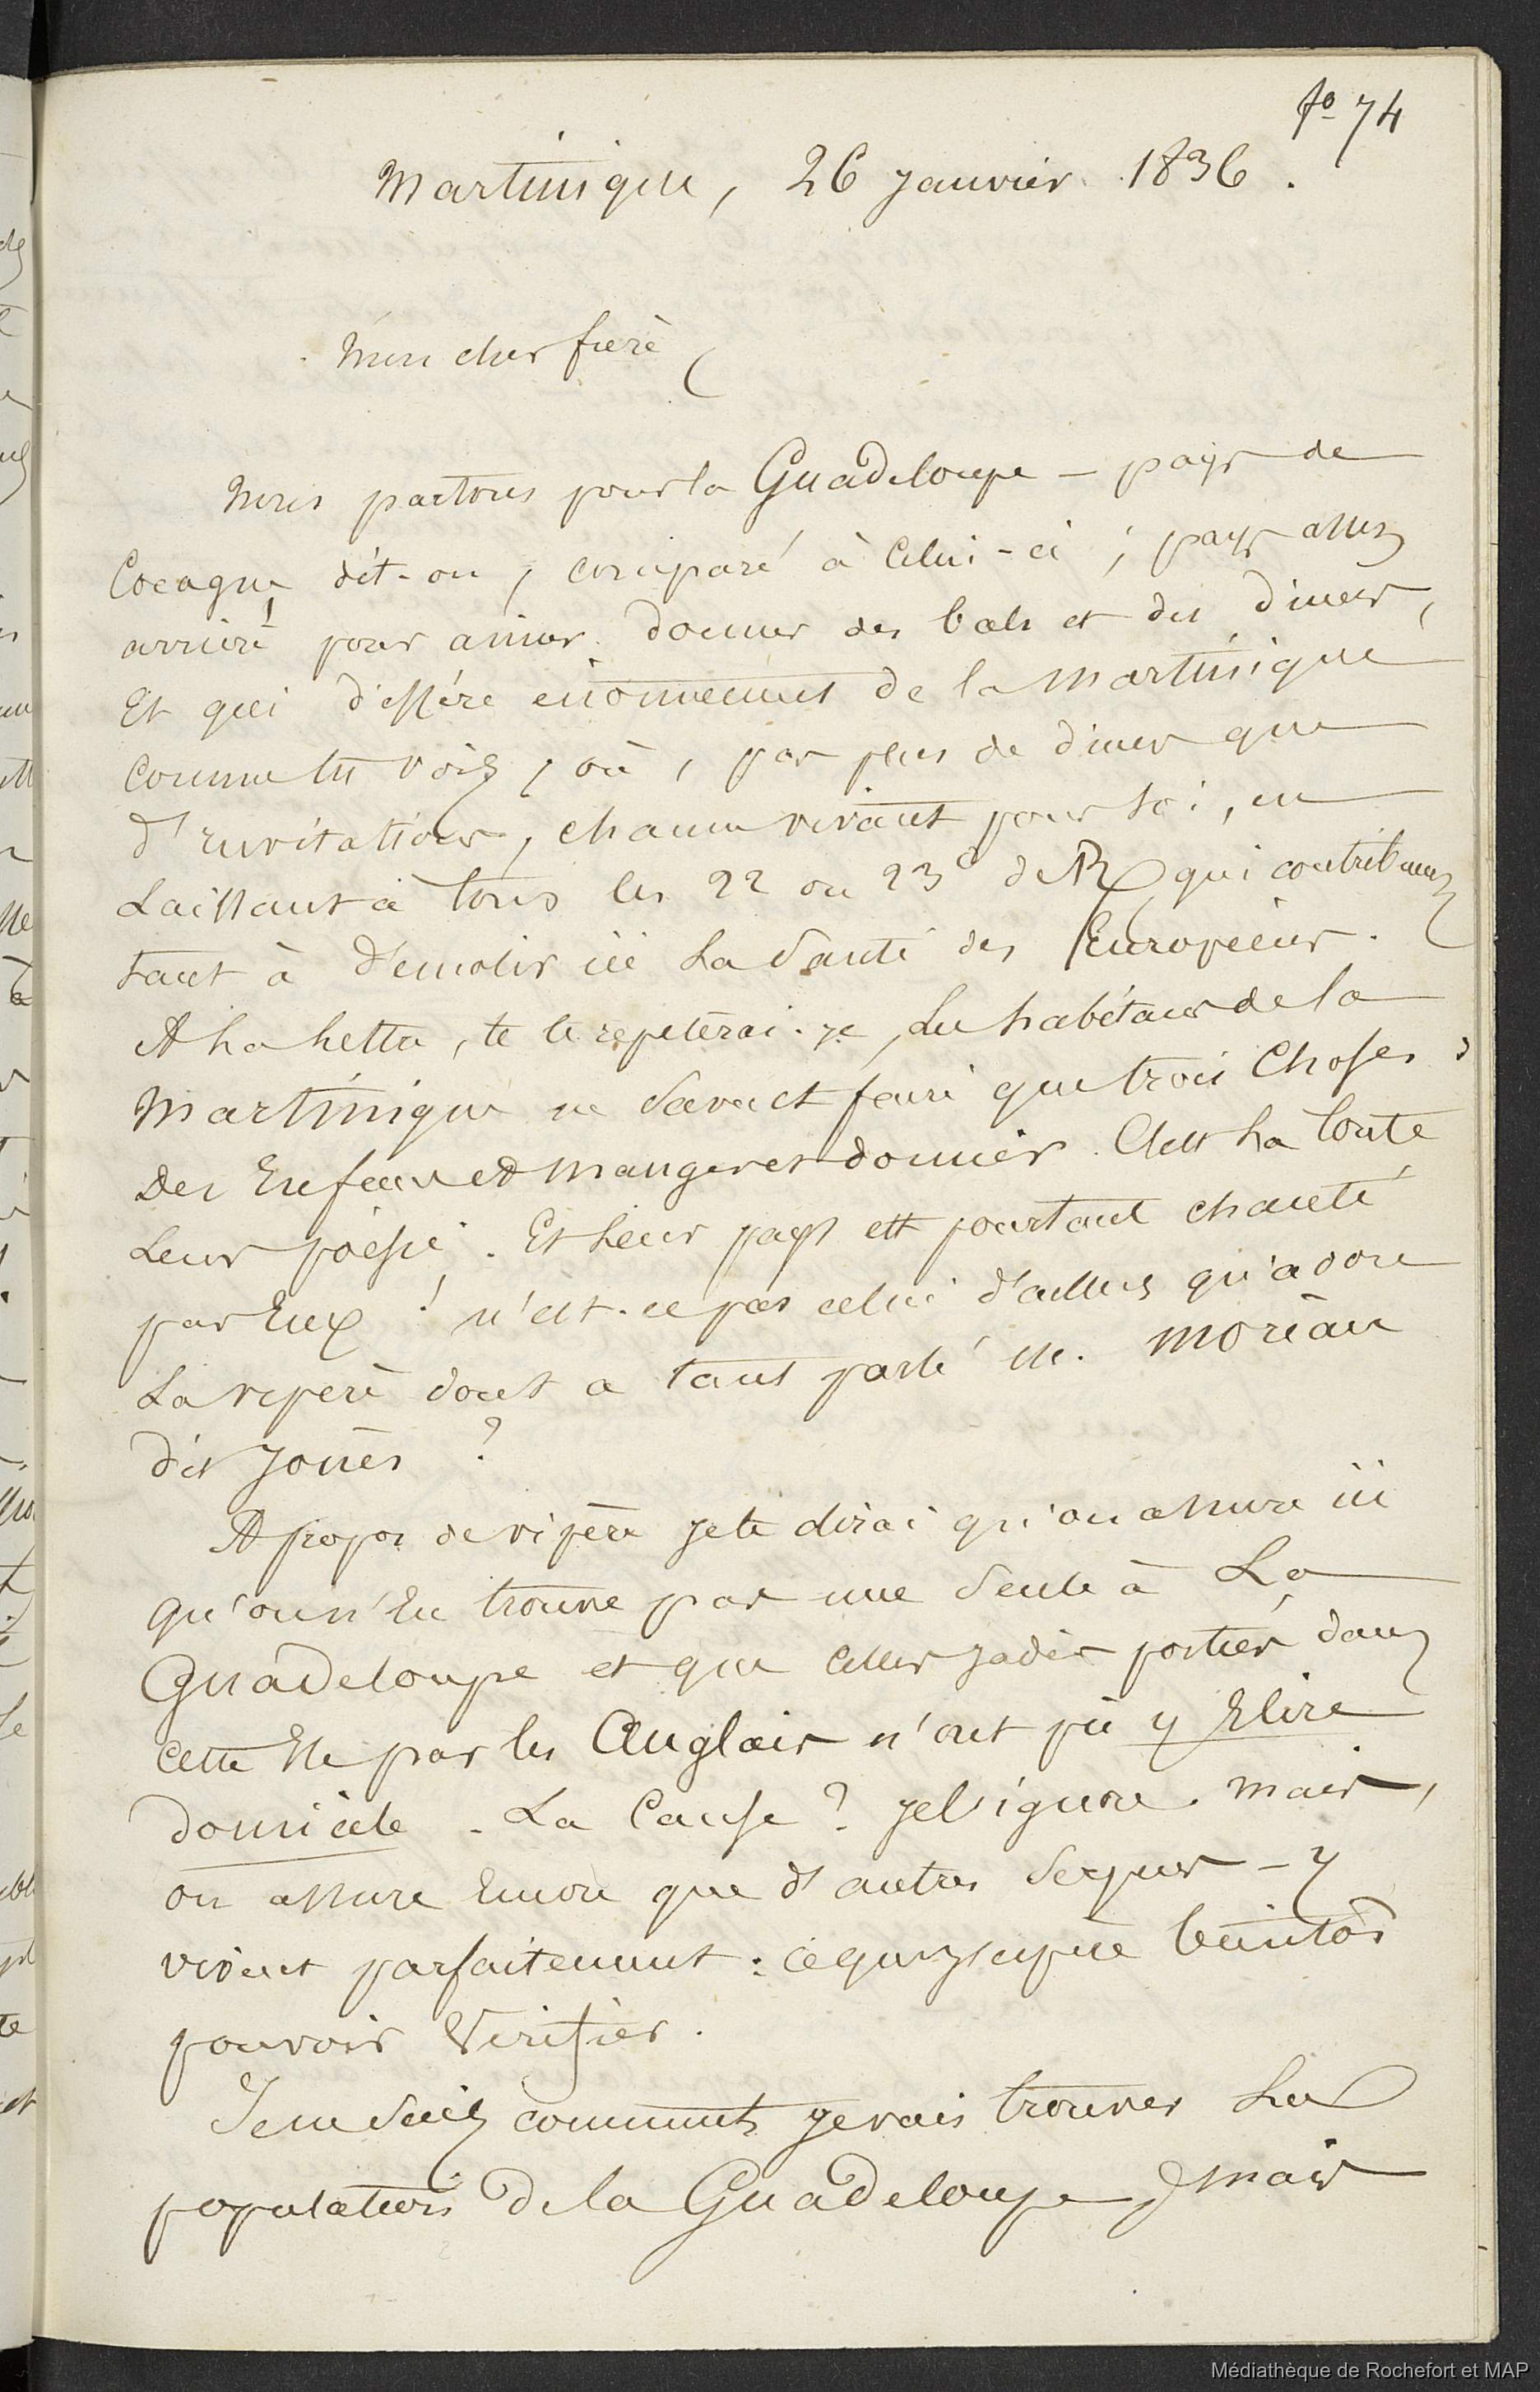 fo 74
Martinique, 26 Janvier 1836.
Mon cher frère,
Nous partons pour la Guadeloupe – pays de
Cocagne dit-on, comparé à celui-ci ; pays assez
arriéré pour aimer donner des bals et des diners,
Et qui différe enormement de la Martinique
comme tu vois, où, pas plus de diner que
d'invitations, chacun vivant pour soi, en
Laissant à tous les 22 ou 23° de R qui contribuent
tant à démolir ici la Santé des Européens.
A la lettre, te le repeterai-je, les habitans de la
Martinique ne savent faire que trois choses :
Des Enfans et manger et dormir. C'est la toute
Leur poésie. Et leur pays est pourtant chanté
par Eux ! n'est-ce pas celui d'ailleurs qu'adore
La vipère dont a tant parlé M. Moreau
dit Jonès ?
A propos de vipère je te dirai qu'on assure ici
qu'on n'En trouve pas une seule à La
Guadeloupe et que celles jadis portées dans
cette Ile par les Anglais n'ont pû y Elire
domicile. La Cause ? je l'ignore. mais,
on assure Encore que d'autres – y
vivent parfaitement : ce que j'espère bientôt
pouvoir Vérifier.
Je ne sais comment je vais trouver La
population de la Guadeloupe, mais
Médiathèque de Rochefort et MAP